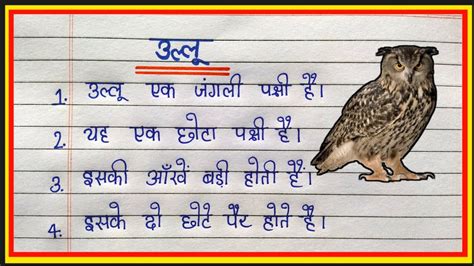 उल्लू
1. उल्लू एक जंगली पक्षी है।
2. यह एक छोटा पक्षी है।
3. इसकी आँखें बड़ी होती हैं।
4. इसके दो छोटे पैर होते हैं।